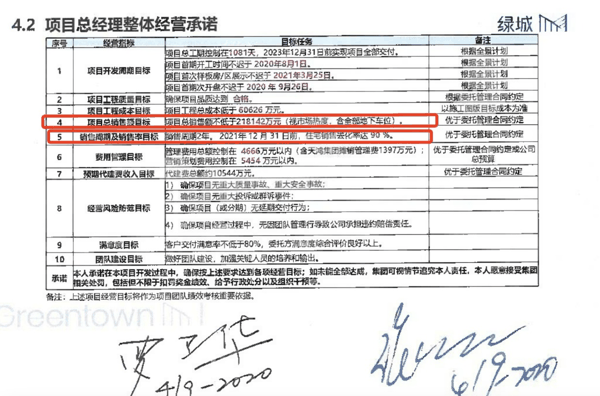 4.2 项目总经理整体经营承诺
绿城
序号 经营指标 目标任务 备注
1 项目开发周期目标
项目总工期控制在1081天，2023年12月31日前实现项目全部交付。 根据全景计划
项目首期开工时间不迟于 2020年8月1日。 根据全景计划
项目首次样板房/区展示不迟于 2021年3月25日。 根据全景计划
项目首次开盘不迟于 2020 年 9月26日。 根据全景计划
2 项目工程质量目标 确保项目品质达到 合格。 根据委托管理合同约定
3 项目工程成本目标 项目工程总成本低于 60626 万元。 以施工图版目标成本为准
4 项目总销售额目标 项目总销售额不低于218142万元（视市场热度，含金额地下车位）。 优于委托管理合同约定
5 销售周期及销售率目标 预售周期2年。 2021年 12 月 31 日前，住宅销售去化率达 90 %。 优于委托管理合同约定
6 费用管理目标
管理费用总额控制在 4666万元以内（含天鸿集团摊销管理费1397万元）；
营销策划费用控制在 5454 万元以内。
优于委托管理合同约定或公司总预算
7 预期代建费收入目标 代建费总额约10544万元。 优于委托管理合同约定
8 经营风险防范目标
1） 确保项目无重大质量事故，重大安全事故；
2） 确保项目无重大投诉或群诉事件；
3） 确保项目（或分期）无延期交付行为；
4） 确保项目经营过程中，无因团队管理行导致公司承担违约赔偿责任。
9 满意度目标 客户交付满意率不低于80%，委托方满意度综合评价良好以上。
10 团队建设目标 做好团队建设，加强关键人员的培养和输出。
承诺 本人承诺在本项目开发过程中，确保按上述要求达到各项经营目标；如未能全部达成，集团可视情节追究本人责任，本人愿意接受集团
相关处罚，包括但不限于扣罚奖金绩效、给予行政处分以及组织干预等。
备注：上述项目经营目标将作为项目团队绩效考核重要依据。
Greentown
4/9-2020
6/9.2020